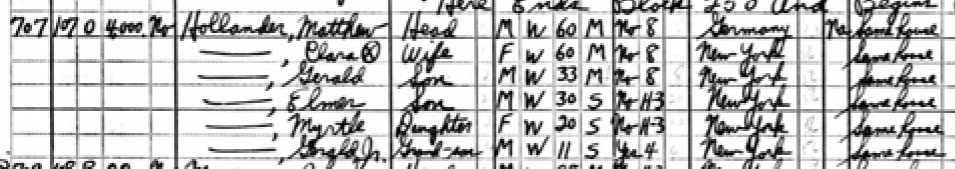 Here Ends Block 250 and Begins
707 107 O 4000 No Hollander, Matthew Head M W 60 M No 8 Germany Na Same house
——, Clara ⓧ Wife F W 60 M No 8 New York Same house
——, Gerald Son M W 33 M No 8 New York Same house
——, Elmer Son M W 30 S No H-3 New York Same house
——, Myrtle Daughter F W 20 S No H-3 New York Same house
——, Gerald Jr. Grand-son M W 11 S Yes 4 New York Same house